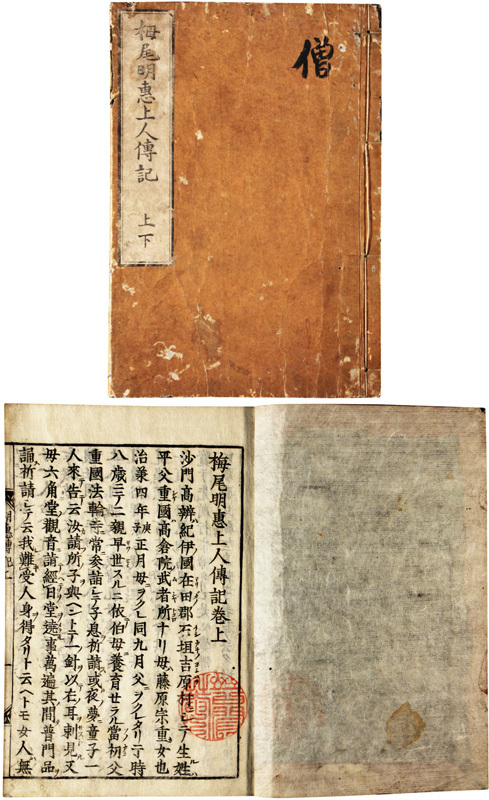 栂尾明惠上人傳記 上下
僧
栂尾明惠上人傳記卷上
沙門高辨紀伊國在田郡石垣吉原村ニテ生姓
平父重國高倉院武者所ナリ母藤原宗重女也
治承四年庚子正月母ヲクレ同九月父ヲクレタリ于時
八歳ニテ二親早世スルニ依伯母養育セラル當初父
重國法輪寺常參詣シテ子息祈請或夜夢童子一
人來告云汝請所子與ヘントテ一針以右耳刺見又
母六角堂觀音詣經日堂遶事萬遍其間普門品
誦祈請シテ云我難受人身得タリト云ヘトモ女人無
明惠傳記上